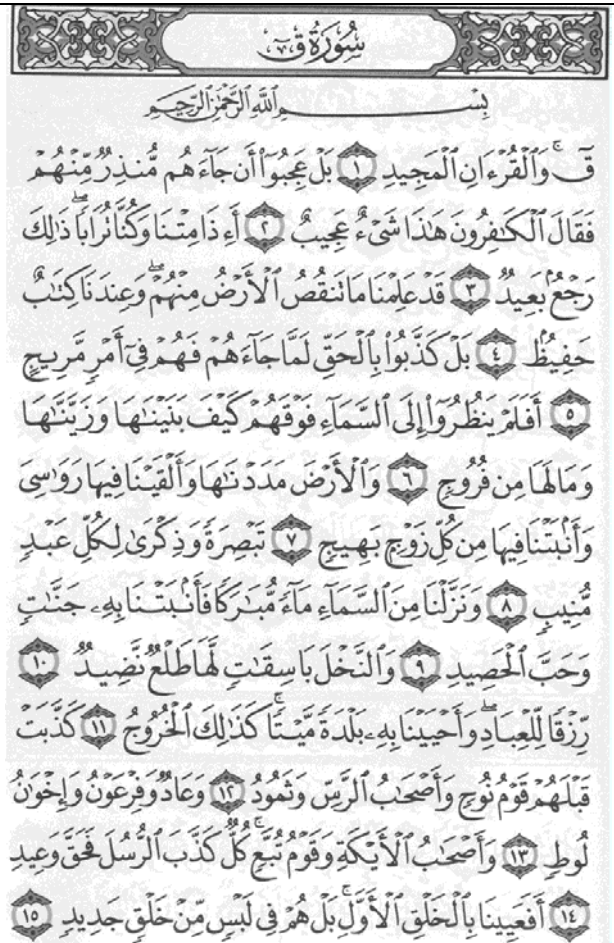 سُورَةُ قٓ
بِسْمِ ٱللَّهِ ٱلرَّحْمَٰنِ ٱلرَّحِيمِ
قٓۚ وَٱلْقُرْءَانِ ٱلْمَجِيدِ ۝١ بَلْ عَجِبُوٓا۟ أَن جَآءَهُم مُّنذِرٌ مِّنْهُمْ
فَقَالَ ٱلْكَٰفِرُونَ هَٰذَا شَىْءٌ عَجِيبٌ ۝٢ أَءِذَا مِتْنَا وَكُنَّا تُرَابًاۖ ذَٰلِكَ
رَجْعٌۢ بَعِيدٌ ۝٣ قَدْ عَلِمْنَا مَا تَنقُصُ ٱلْأَرْضُ مِنْهُمْۖ وَعِندَنَا كِتَٰبٌ
حَفِيظٌۢ ۝٤ بَلْ كَذَّبُوا۟ بِٱلْحَقِّ لَمَّا جَآءَهُمْ فَهُمْ فِىٓ أَمْرٍ مَّرِيجٍ
۝٥ أَفَلَمْ يَنظُرُوٓا۟ إِلَى ٱلسَّمَآءِ فَوْقَهُمْ كَيْفَ بَنَيْنَٰهَا وَزَيَّنَّٰهَا
وَمَا لَهَا مِن فُرُوجٍ ۝٦ وَٱلْأَرْضَ مَدَدْنَٰهَا وَأَلْقَيْنَا فِيهَا رَوَٰسِىَ
وَأَنۢبَتْنَا فِيهَا مِن كُلِّ زَوْجٍۭ بَهِيجٍ ۝٧ تَبْصِرَةً وَذِكْرَىٰ لِكُلِّ عَبْدٍ
مُّنِيبٍ ۝٨ وَنَزَّلْنَا مِنَ ٱلسَّمَآءِ مَآءً مُّبَٰرَكًا فَأَنۢبَتْنَا بِهِۦ جَنَّٰتٍ
وَحَبَّ ٱلْحَصِيدِ ۝٩ وَٱلنَّخْلَ بَاسِقَٰتٍ لَّهَا طَلْعٌ نَّضِيدٌ ۝١٠
رِّزْقًا لِّلْعِبَادِۖ وَأَحْيَيْنَا بِهِۦ بَلْدَةً مَّيْتًاۚ كَذَٰلِكَ ٱلْخُرُوجُ ۝١١ كَذَّبَتْ
قَبْلَهُمْ قَوْمُ نُوحٍ وَأَصْحَٰبُ ٱلرَّسِّ وَثَمُودُ ۝١٢ وَعَادٌ وَفِرْعَوْنُ وَإِخْوَٰنُ
لُوطٍ ۝١٣ وَأَصْحَٰبُ ٱلْأَيْكَةِ وَقَوْمُ تُبَّعٍۚ كُلٌّ كَذَّبَ ٱلرُّسُلَ فَحَقَّ وَعِيدِ
۝١٤ أَفَعَيِينَا بِٱلْخَلْقِ ٱلْأَوَّلِۚ بَلْ هُمْ فِى لَبْسٍ مِّنْ خَلْقٍ جَدِيدٍ ۝١٥